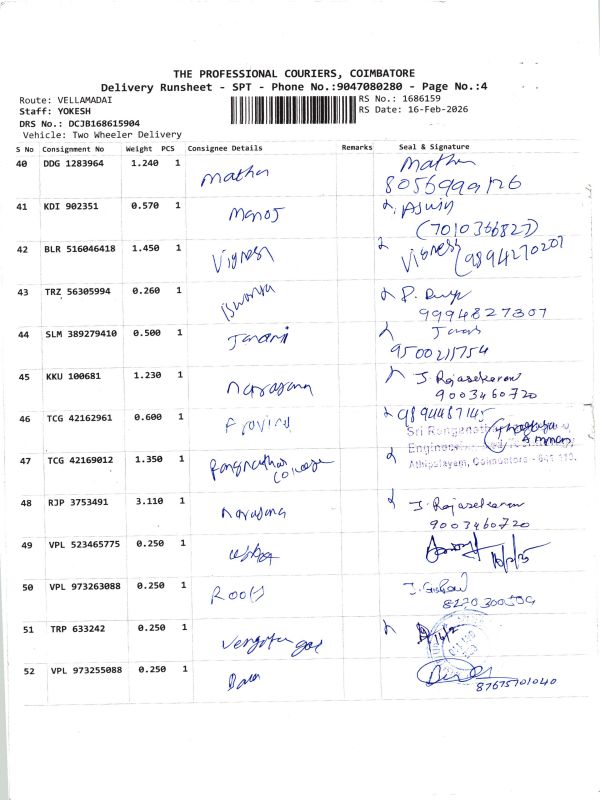 THE PROFESSIONAL COURIERS, COIMBATORE
Delivery Runsheet - SPT - Phone No.:9047080280 - Page No.:4
Route: VELLAMADAI
RS No.: 1686159
Staff: YOKESH
RS Date: 16-Feb-2026
DRS No.: DCJB168615904
Vehicle: Two Wheeler Delivery
S No Consignment No Weight PCS Consignee Details Remarks Seal & Signature
40 DDG 1283964 1.240 1
41 KDI 902351 0.570 1 Manoj Aswin
(7010366827)
42 BLR 516046418 1.450 1 Vignesh Vignesh (9894270207
43 TRZ 56305994 0.260 1
9994827307
44 SLM 389279410 0.500 1 Janani
9500211754
45 KKU 100681 1.230 1 Narayana J. Rajasekaran
9003460720
46 TCG 42162961 0.600 1 9894487145
Sri Ranganathar
Engineering
Athipalayam, Coimbatore - 641 110.
47 TCG 42169012 1.350 1 Ranganathar College
48 RJP 3753491 3.110 1 Narayana J. Rajasekaran
9003460720
49 VPL 523465775 0.250 1
50 VPL 973263088 0.250 1 Roots
51 TRP 633242 0.250 1
52 VPL 973255088 0.250 1